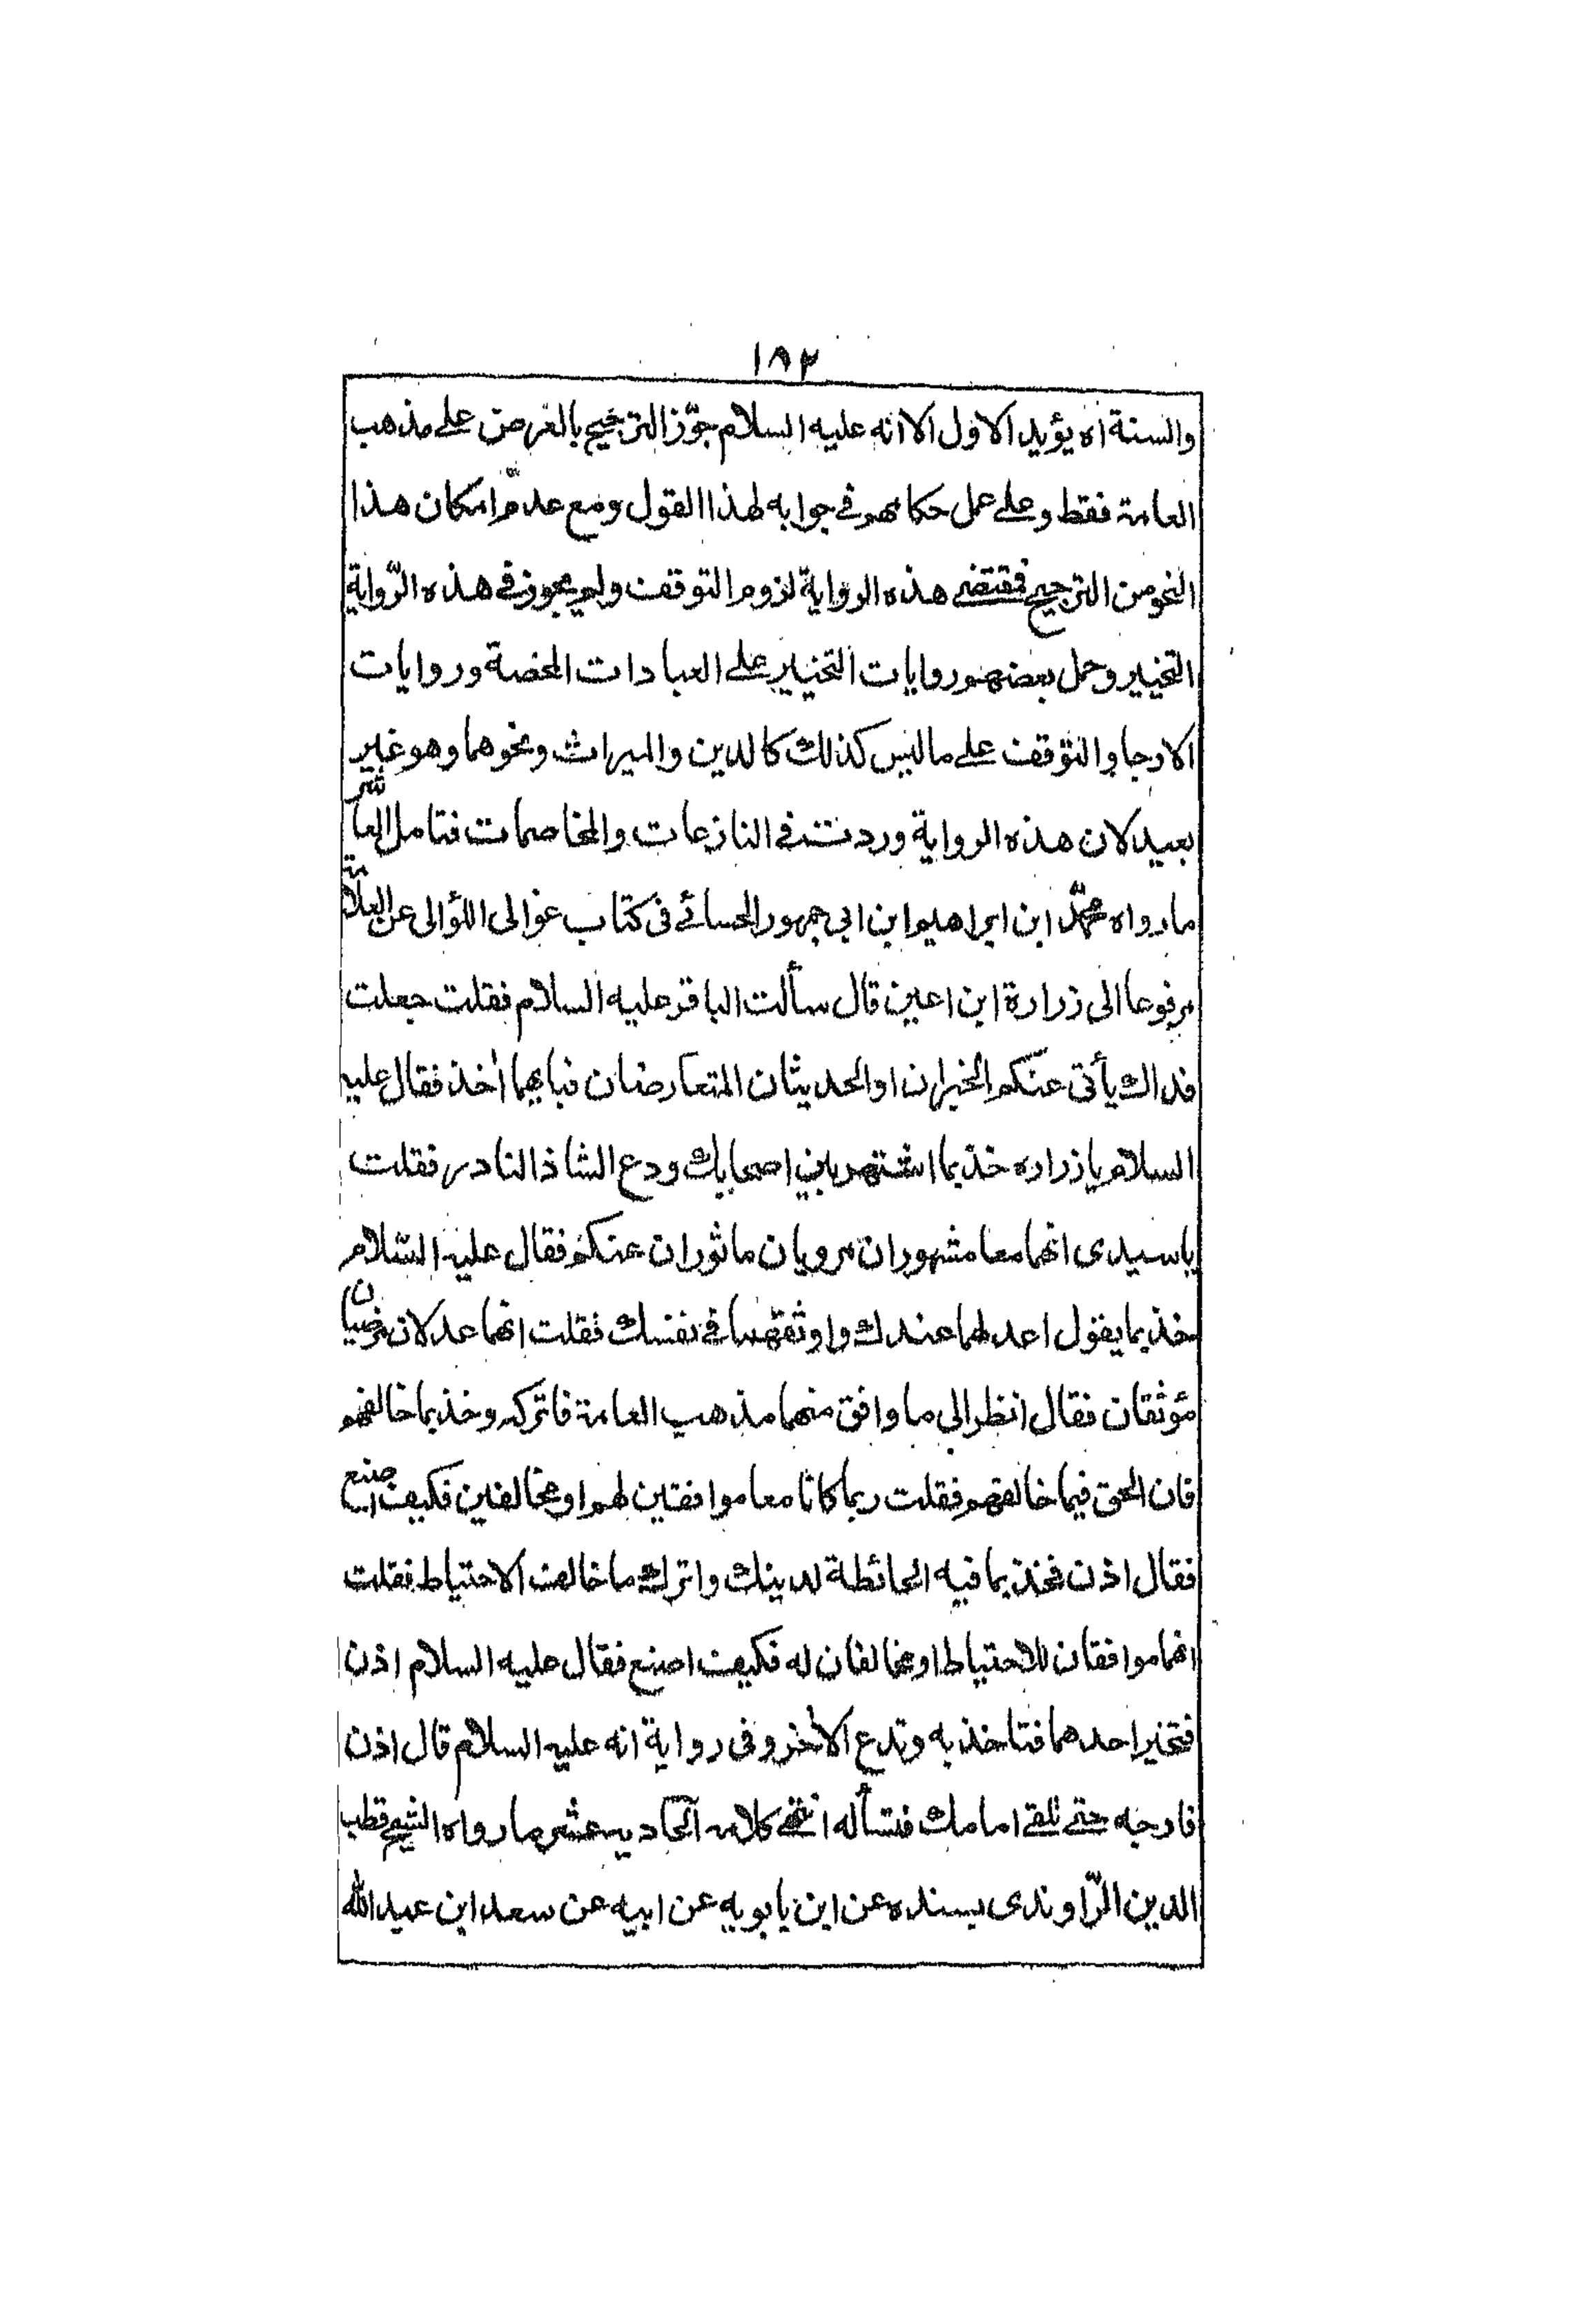 ١٨٢
والسنة اه يؤيد الاول الا انه عليه السلام جوّز الترجيح بالعرض على مذهب
العامة فقط وعلى عمل حكامهم في جوابه لهذا القول ومع عدم امكان هذا
النحو من الترجيح فمقتضى هذه الرواية لزوم التوقف ولم يجوز في هذه الرّواية
التخيير وحمل بعضهم روايات التخيير على العبادات المحضة وروايات
الارجاء والتوقف على ما ليس كذلك كالدين والميراث ونحوهما وهو غير
بعيد لان هذه الرواية وردت في المنازعات والمخاصمات فتامل العاشر
ما رواه محمّد ابن ابراهيم ابن ابي جمهور الحسائے فى كتاب عوالى اللؤالى عن العلّامة
مرفوعا الى زرارة ابن اعين قال سألت الباقر عليه السلام فقلت جعلت
فداك يأتى عنكم الخبران او الحديثان المتعارضان فبايهما أخذ فقال عليه
السلام يا زراره خذ بما اشتهر بين اصحابك ودع الشاذ النادر فقلت
يا سيدى انهما معا مشهوران مرويان ماثوران عنكم فقال عليه السّلام
خذ بما يقول اعدلهما عندك واوثقهما في نفسك فقلت انهما عدلان مرضيان
مؤثقان فقال انظر الى ما وافق منهما مذهب العامة فاتركه وخذ بما خالفهم
فان الحق فيما خالفهم فقلت ربما كانا معا موافقين لهم او مخالفين فكيف اصنع
فقال اذن فخذ بما فيه الحائطة لدينك واترك ما خالف الاحتياط فقلت
انهما موافقان للاحتياط او مخالفان له فكيف اصنع فقال عليه السلام اذن
فتخير احدهما فتاخذ به وتدع الأخر وفى رواية انه عليه السلام قال اذن
فارجه حتى تلقى امامك فتسأله انتهى كلامه الحاديعشر ما رواه الشيخ قطب
الدين الرّاوندى بسنده عن ابن بابويه عن ابيه عن سعد ابن عبد الله